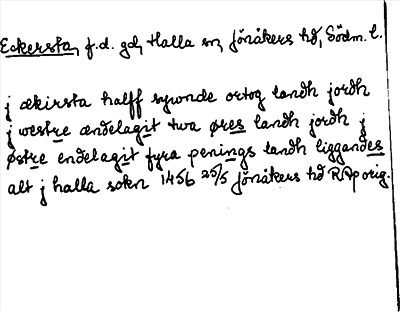 Eckersta, f.d. gd, Halla sn, Jönåkers hd, Södm. l.
j ækirsta halff sywonde ortog landh jordh
j westre ændelagit twa øres landh jordh j
østre endelagit fyra penings landh liggandes
alt j halla sokn 1456 25/5 Jönåkers hd RAp orig.